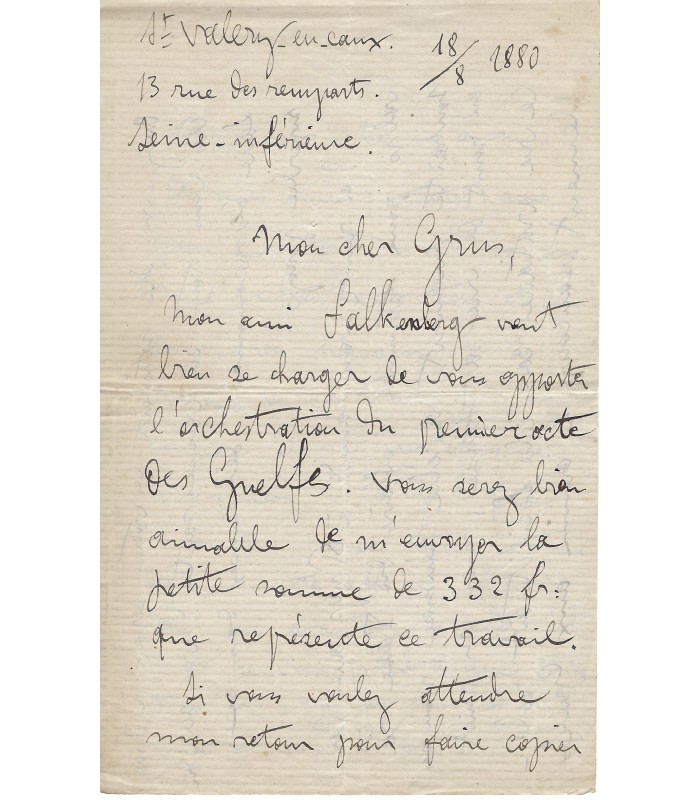 St Valery-en-caux. 18/8 1880
13 rue des remparts.
Seine-inférieure.
Mon cher Grus,
Mon ami Falkenberg veut
bien se charger de vous apporter
l'orchestration du premier acte
des Guelfes. Vous serez bien
aimable de m'envoyer la
petite somme de 332 fr:
que représente ce travail.
Si vous voulez attendre
mon retour pour faire copier